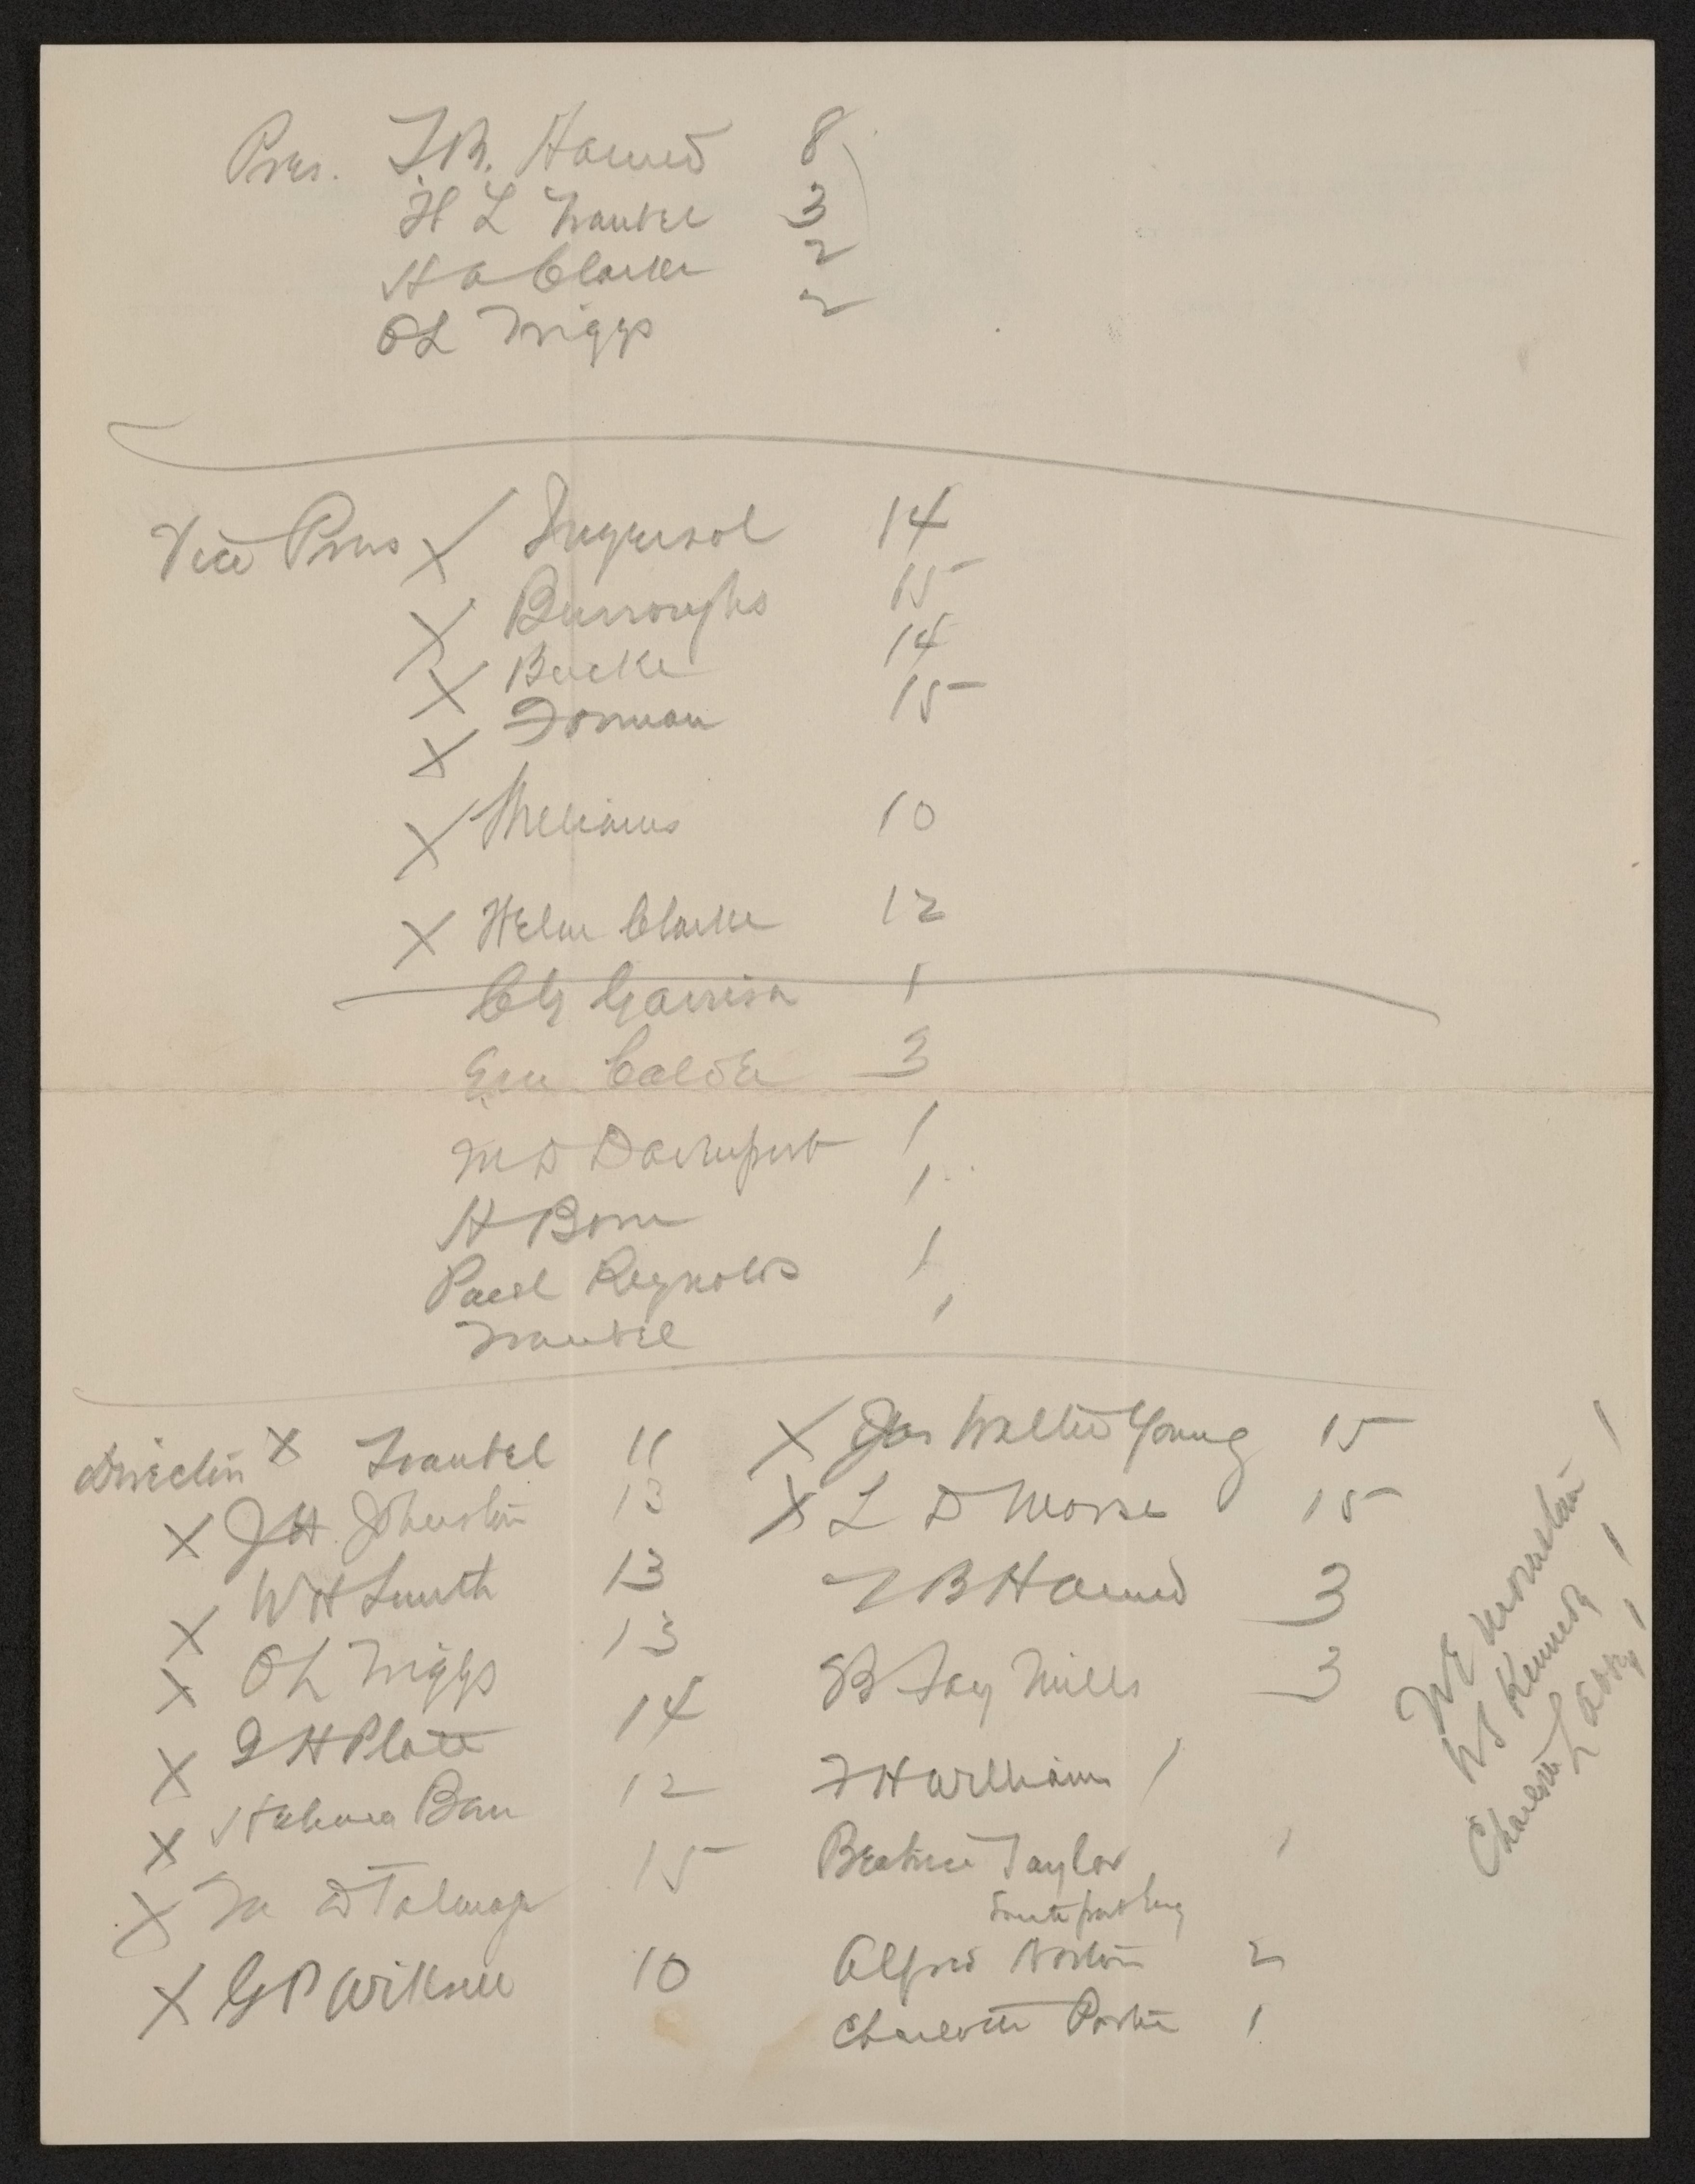 Pres. T.B. Harned 8
H L Traubel 3
H A Clarke 2
O L Triggs 2
Vice Pres X Ingersol 14
X Burroughs 15
X Bucke 14
X Forman 15
X Williams 10
X Helen Clarke 12
Garrison 1
Calder 3
M D Davenport 1
H Bonn 1
Paul Reynolds 1
Traubel 1
Directors X Traubel 11
X J H Johnston 13
X W H Smith 13
X O L Triggs 13
X I H Platt 14
X Helena Born 12
X Talmage 15
X G P Wiksell 10
X Jas Walter Young 15
X L D Morse 15
T B Harned 3
B Fay Mills 3
F H Williams 1
Beatrice Taylor 1
Southport Eng
Alfred Norton 2
Charlotte Porter 1
W E 1
W S Kennedy 1
Charlotte 1